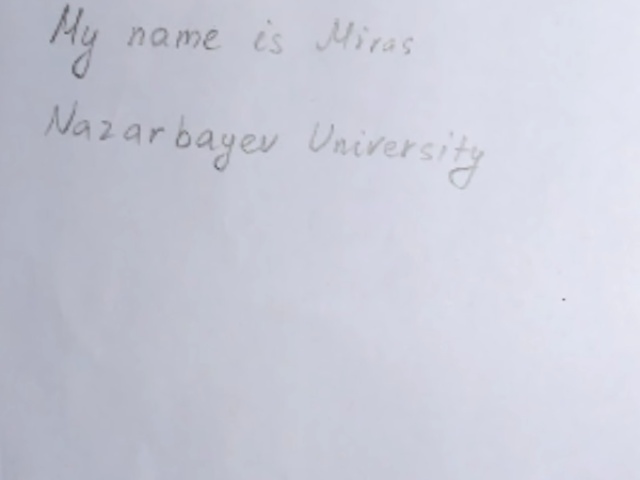 My name is Miras
Nazarbayev University